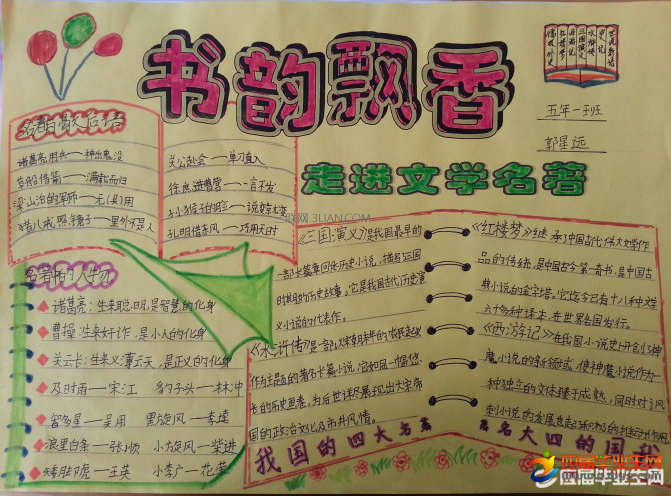 书韵飘香
走进文学名著
世说新语
史记
水浒传
三国演义
西游记
红楼梦
儒林外史
五年一班
郭星远
名著中的歇后语
诸葛亮用兵——神出鬼没
草船借箭——满载而归
梁山泊的军师——无(吴)用
猪八戒照镜子——里外不是人
关公赴会——单刀直入
徐庶进曹营——一言不发
孙猴子的脸——说变就变
孔明借东风——巧用天时
名著中的人物
诸葛亮:生来聪明,是智慧的化身
曹操:生来奸诈,是小人的化身
关云长:生来义薄云天,是正义的化身
及时雨——宋江 豹子头——林冲
智多星——吴用 黑旋风——李逵
浪里白条——张顺 小旋风——柴进
矮脚虎——王英 小李广——花荣
《三国演义》是我国最早的
一部长篇章回体历史小说,描写三国
时期的历史故事。它是我国古代历史演
义小说的代表作。
《水浒传》是一部以宋朝末年的农民起义
作为主题的著名长篇小说,它如同一幅悠
长的历史画卷,为后世详尽展现出大宋帝
国的政治文化及市井风情。
《红楼梦》继承了中国古代伟大文学作
品的传统,是中国古今第一奇书,是中国古
典小说的金字塔。它迄今已有十八种文
六十多种译本,在世界各国发行。
《西游记》在我国小说史上开创了神
魔小说的新领域,使神魔小说作为
一种独立的文体臻于成熟,同时对讽
我国的四大名著
我国的四大名著
图网 3LIAN.COM
应届毕业生网